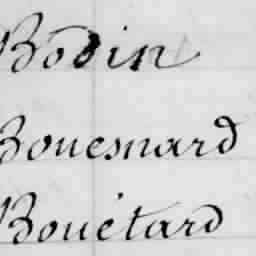 Bodin
Bouesnard
Bouëtard